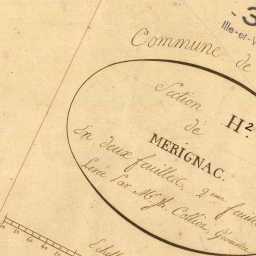 3
Ille-et-V
Commune de
Section
H²
de
MERIGNAC.
En deux feuilles, 2me feuille
Levé Par Mr
Echelle